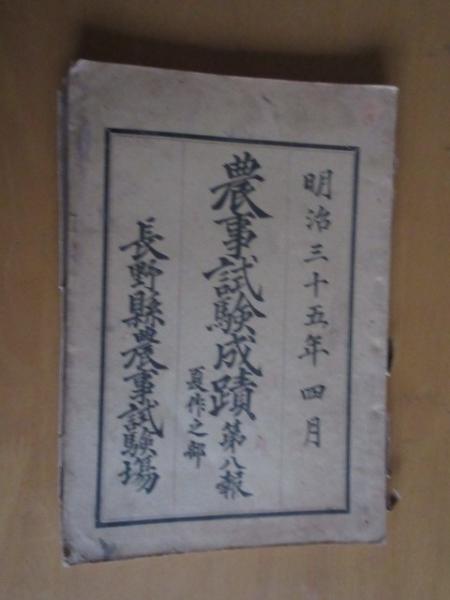 明治三十五年四月
農事試験成蹟第八報
夏作之部
長野縣農事試験場